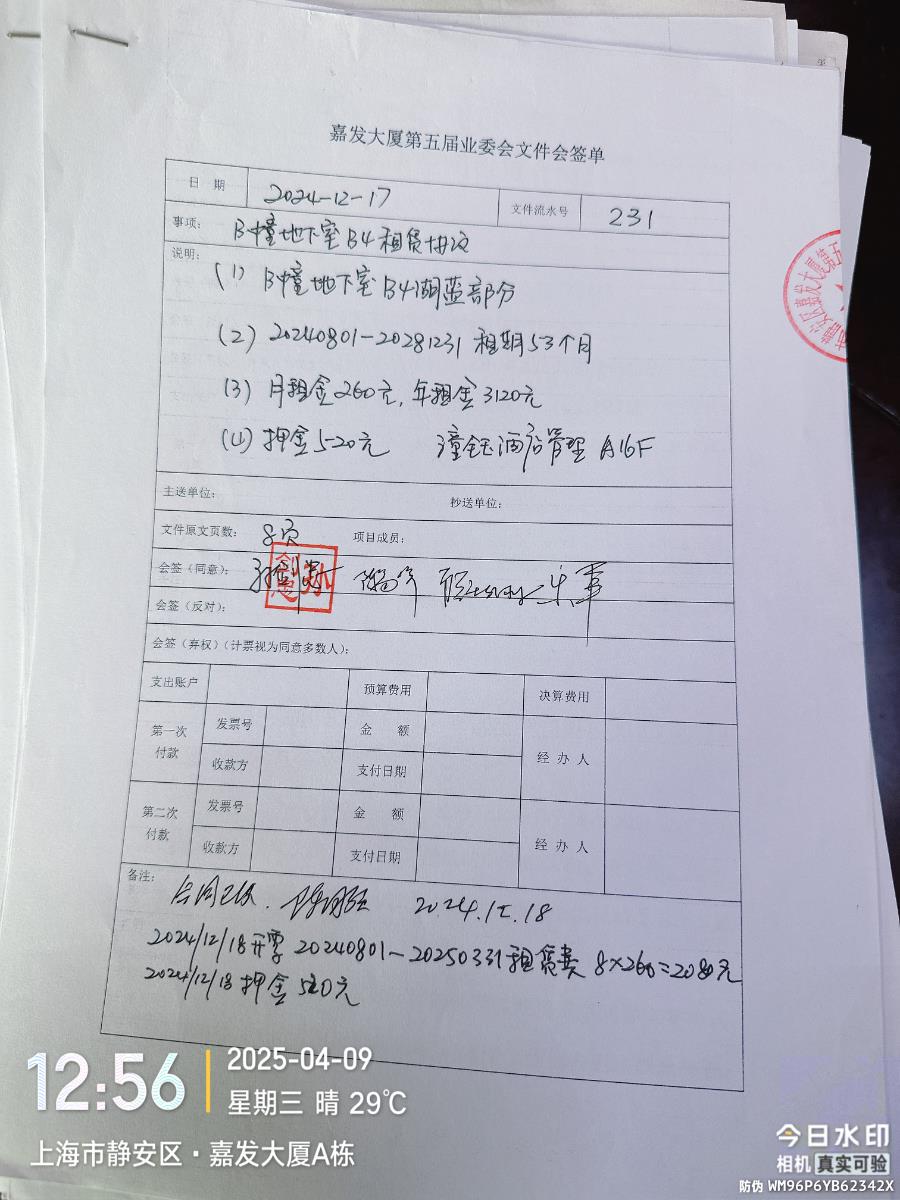 嘉发大厦第五届业委会文件会签单
日 期 2024-12-17 文件流水号 231
事项: B幢地下室B4租赁协议
说明:
(1) B幢地下室B4湖蓝部分
(2) 20240801-20281231 租期53个月
(3) 月租金260元, 年租金3120元
(4) 押金520元 潼钰酒店管理 A16F
主送单位: 抄送单位:
文件原文页数: 8页 项目成员:
会签(同意):
会签(反对):
会签(弃权)(计票视为同意多数人):
支出账户 预算费用 决算费用
第一次付款 发票号 金 额 经 办 人
收款方 支付日期
第二次付款 发票号 金 额 经 办 人
收款方 支付日期
备注:
合同已收. 2024.12.18
2024/12/18开票 20240801-20250331租赁费 8×260=2080元
2024/12/18 押金520元
12:56
2025-04-09
星期三 晴 29℃
上海市静安区·嘉发大厦A栋
今日水印
相机 真实可验
防伪 WM96P6YB62342X